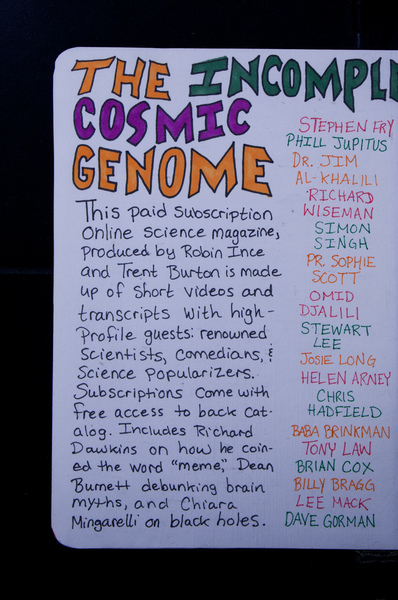 THE INCOMPL
COSMIC
GENOME
This paid subscription
online science magazine,
produced by Robin Ince
and Trent Burton is made
up of short videos and
transcripts with high-
profile guests: renowned
scientists, comedians, &
science popularizers.
Subscriptions come with
free access to back cat-
alog. Includes Richard
Dawkins on how he coin-
ed the word "meme," Dean
Burnett debunking brain
myths, and Chiara
Mingarelli on black holes.
STEPHEN FRY
PHILL JUPITUS
DR. JIM
AL-KHALILI
RICHARD
WISEMAN
SIMON
SINGH
PR. SOPHIE
SCOTT
OMID
DJALILI
STEWART
LEE
JOSIE LONG
HELEN ARNEY
CHRIS
HADFIELD
BABA BRINKMAN
TONY LAW
BRIAN COX
BILLY BRAGG
LEE MACK
DAVE GORMAN